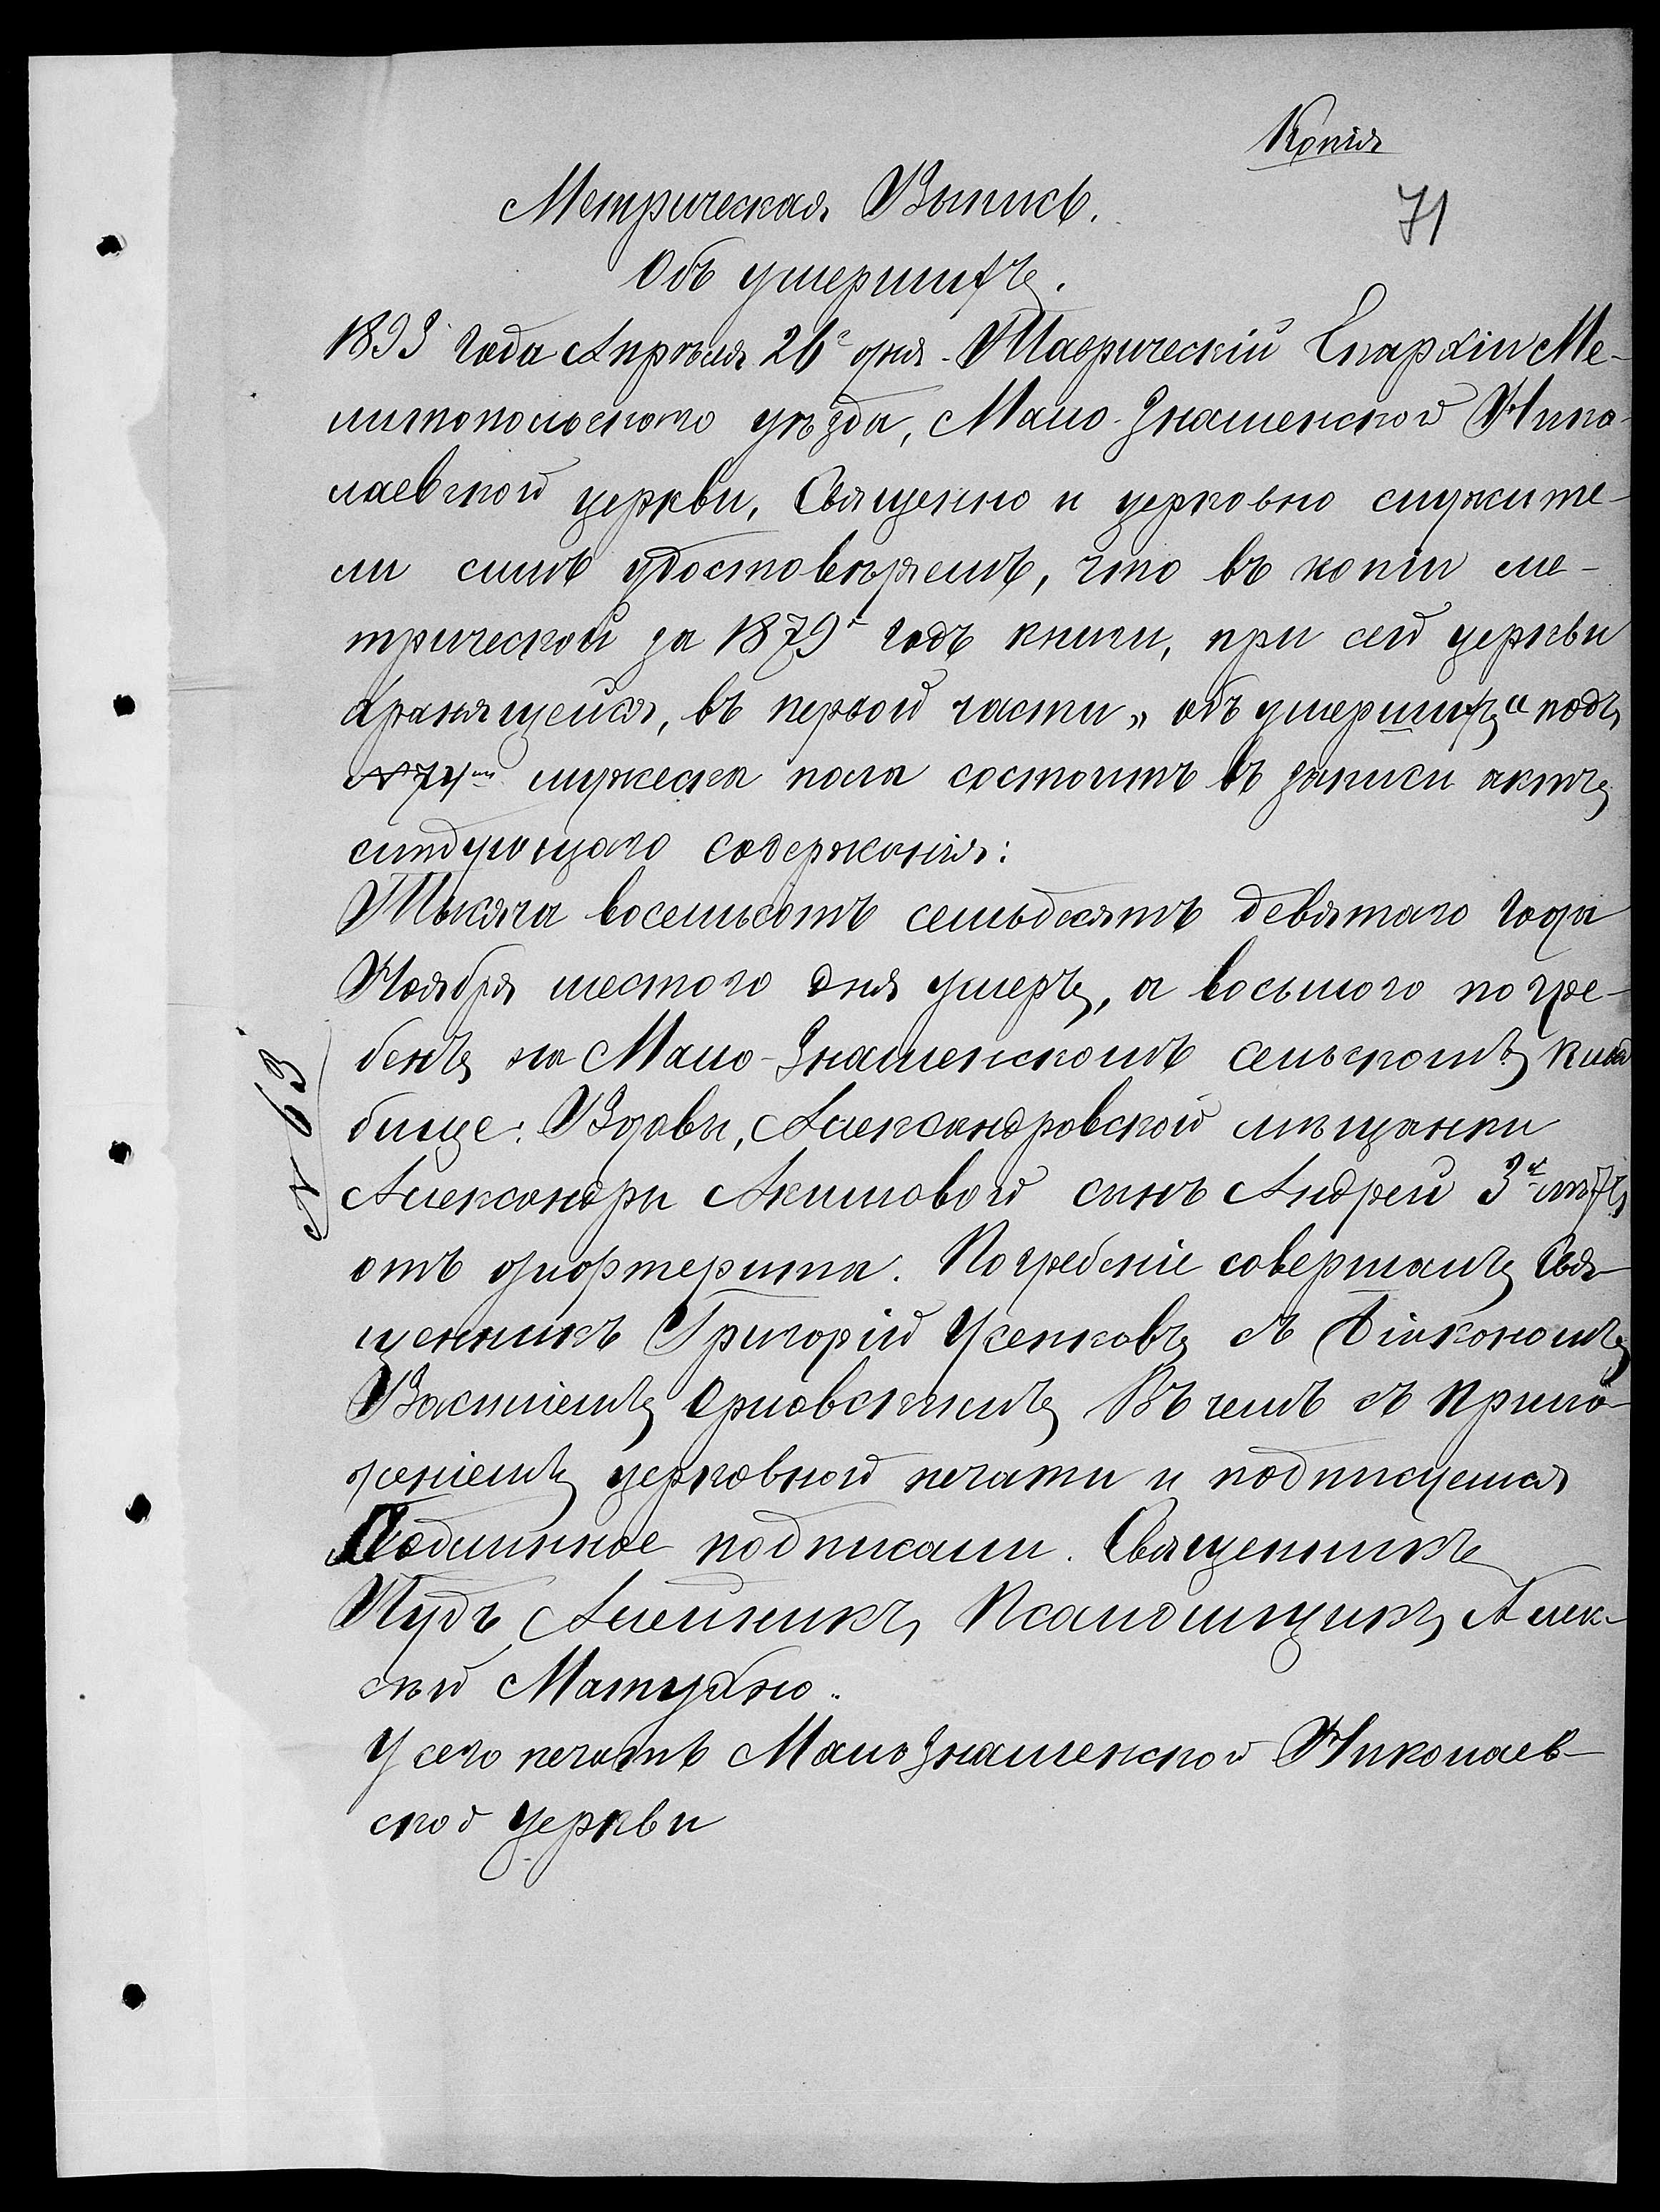 Копія
71
Метрическая Выпись.
Объ умершихъ.
1893 года Апрѣля 26го дня. Таврическій Епархіи Ме-
литопольскаго уѣзда, Мало-Знаменской Нико-
лаевской церкви, Священно и церковно служите-
ли симъ удостовѣряемъ, что въ копіи ме-
трической за 1879й годъ книги, при сей церкви
хранящейся, въ первой части „объ умершихъ“ подъ
№ 74мъ мужеска пола состоитъ въ записи актъ
слѣдующаго содержанія:
Тысяча восемьсотъ семьдесятъ девятаго года
Ноября шестого дня умеръ, а восьмого погре-
бенъ на Мало-Знаменскомъ сельскомъ клад
бище: Вдовы, Александровской мѣщанки
Александры Акимовой сынъ Андрей 3х лѣтъ
отъ дифтерита. Погребеніе совершалъ Свя-
щенникъ Григорій Усенковъ съ Діакономъ
Василіемъ Орловскимъ Въ чемъ съ прило-
женіемъ церковной печати и подписуемся
Подлинное подписали. Священникъ
Пудъ Алейникъ, Псаломщикъ Алек-
сѣй Матухно.
У сего печать Мало Знаменской Николаев-
ской церкви
№ 63